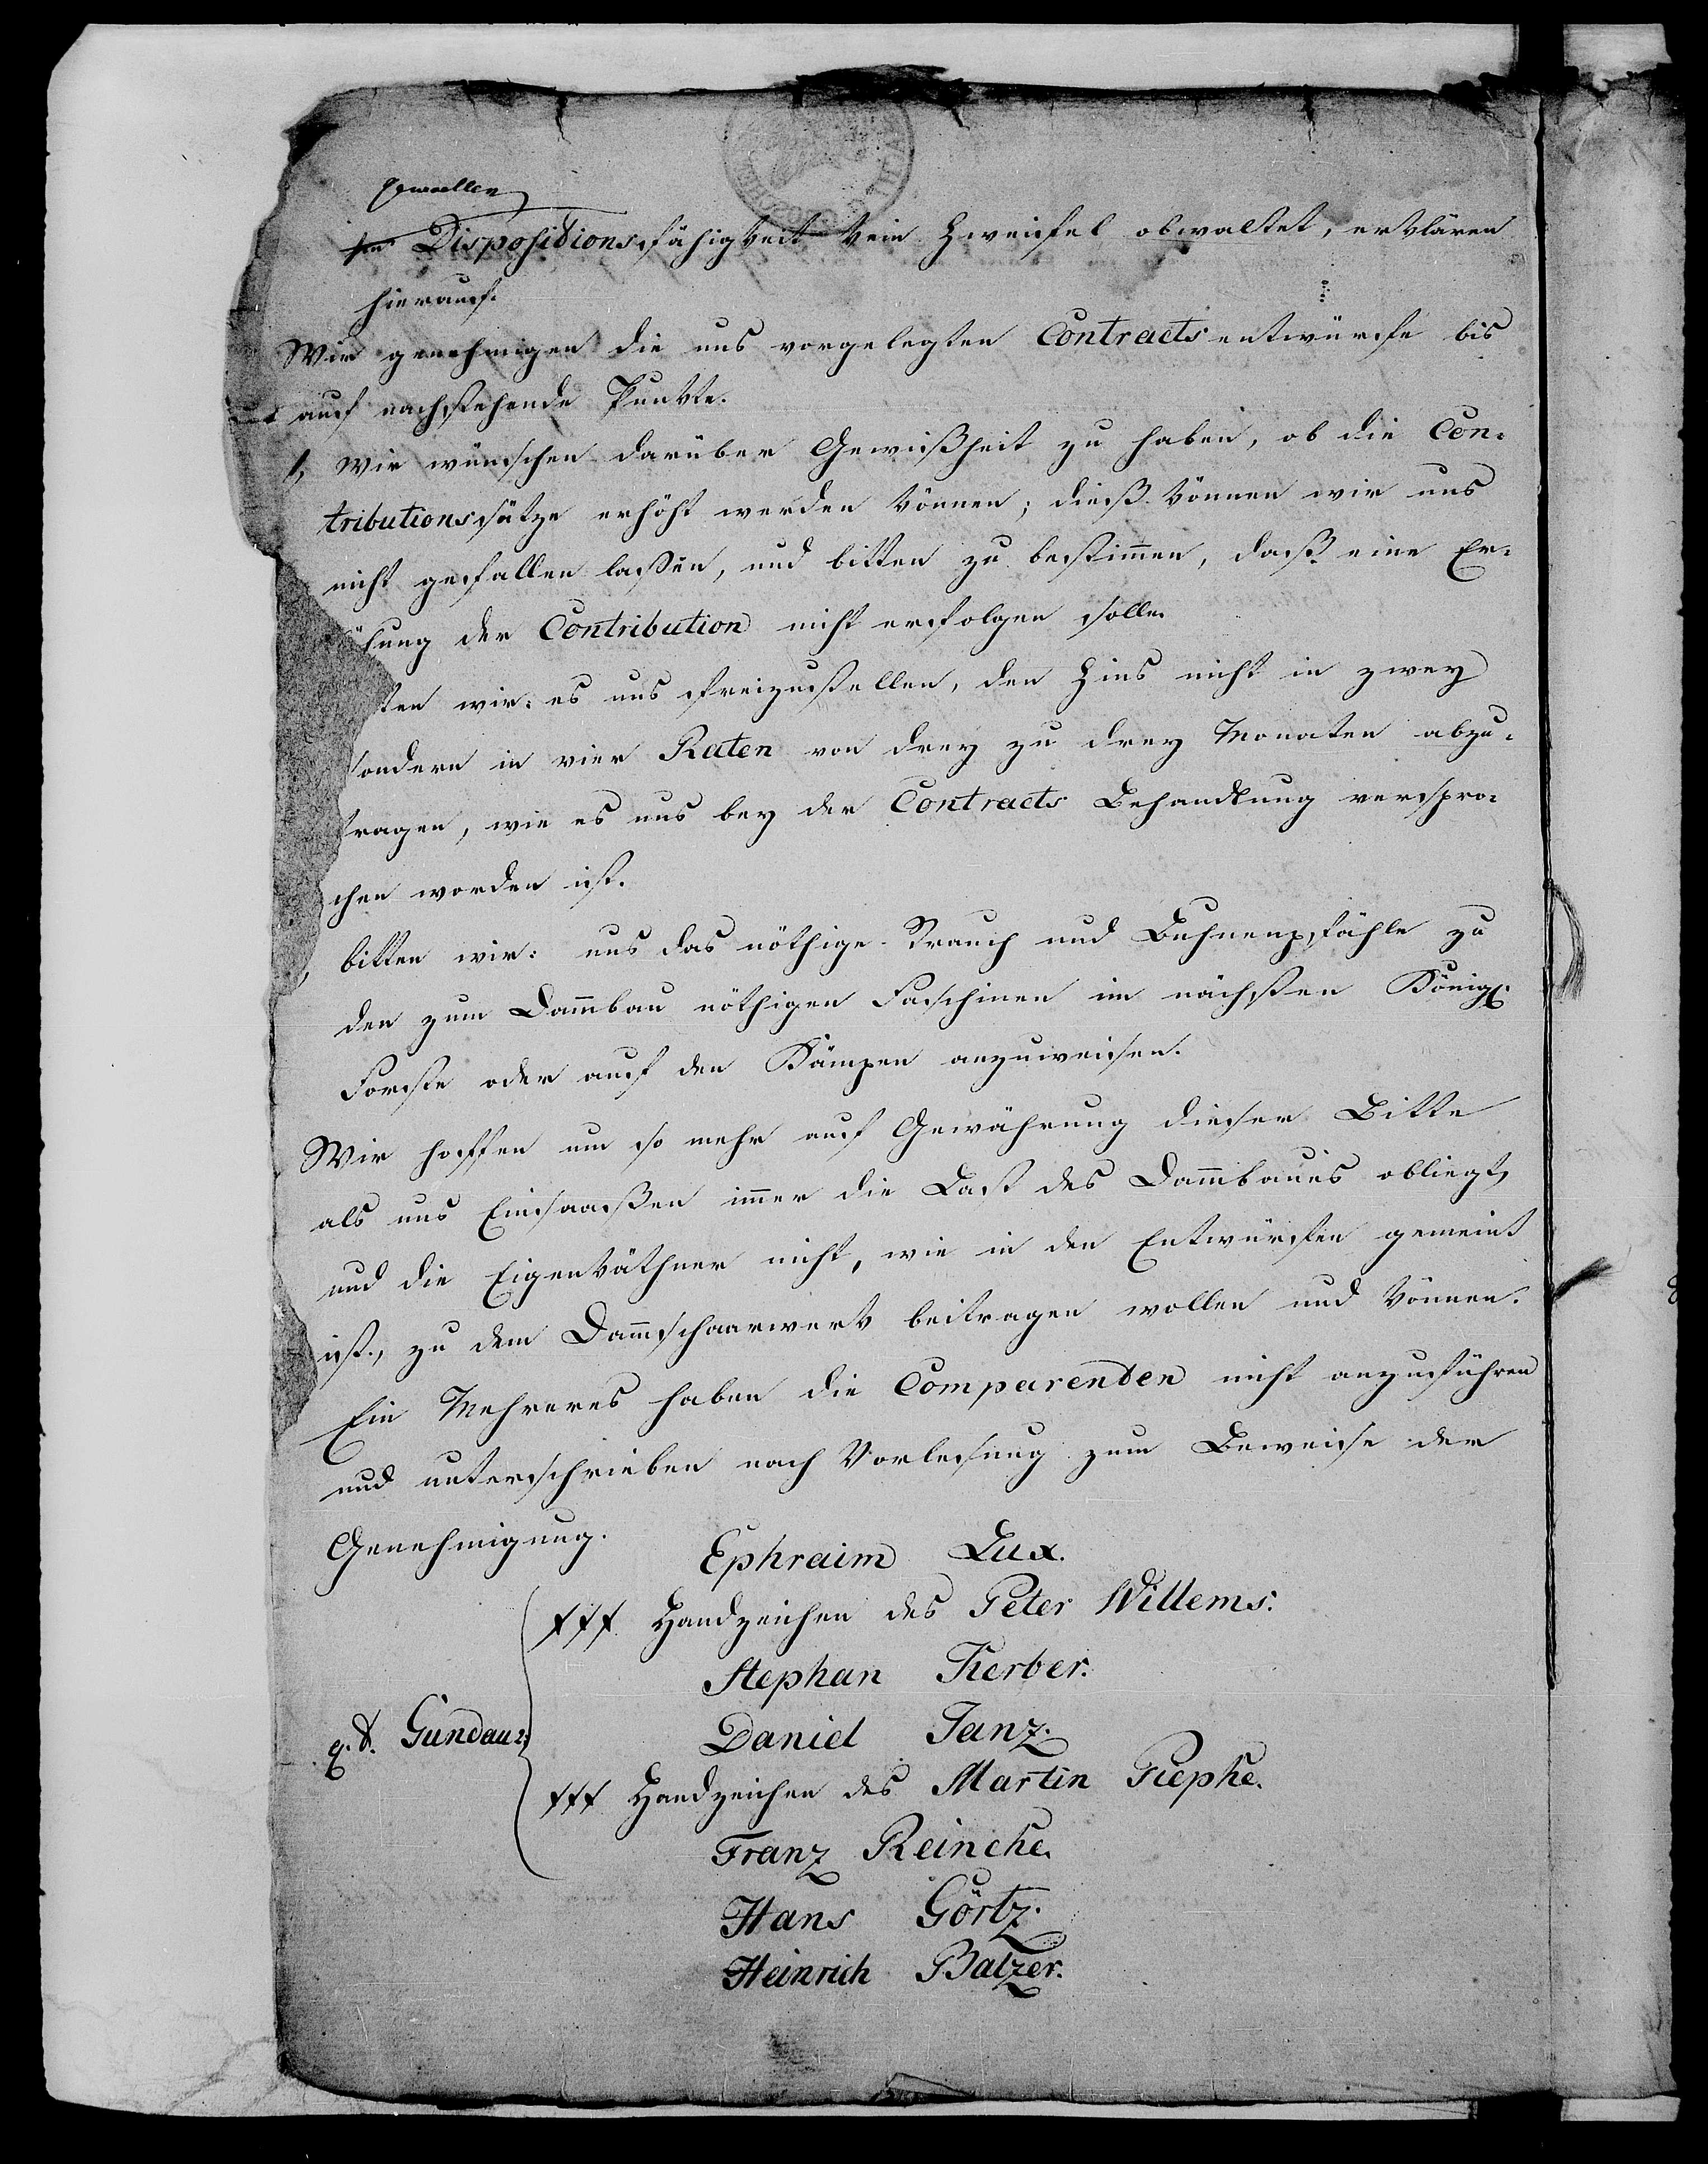 Dispositionsfähigkeit kein Zweifel obwaltet, erklären
hierauf.
Wir genehmigen die uns vorgelegten Contractsentwürfe bis
auf nachstehende Punkte.
1, Wir wünschen darüber Gewißheit zu haben, ob die Con-
tributionssätze erhöht werden können; dieß können wir uns
nicht gefallen laßen, und bitten zu bestimmen, daß eine Er-
hung der Contribution nicht erfolgen solle.
ten wir: es uns freizustellen, den Zins nicht in zwey
sondern in vier Raten von drey zu drey Monaten abzu-
tragen, wie es uns bey der Contracts Behandlung verspro-
chen worden ist.
bitten wir: uns das nöthige Strauch und Buhnenpfähle zu
den zum Dammbau nöthigen Faschinen im nächsten Königl.
Forste oder auf den Kämpen anzuweisen.
Wir hoffen um so mehr auf Gewährung dieser Bitte
als uns Einsaaßen immer die Last des Dammbaues obliegt,
und die Eigenkäthner nicht, wie in den Entwürfen gemeint
ist, zu dem Dammschaarwerk beitragen wollen und können.
Ein Mehreres haben die Comparenten nicht anzuführen
und unterschrieben nach Vorlesung zum Beweise der
Genehmigung.
Ephraim Lux.
+++ Handzeichen des Peter Willems.
Stephan Kerber.
Daniel Janz.
Handzeichen des Martin Piepke.
Franz Reincke.
Hans Görtz.
Heinrich Balzer.